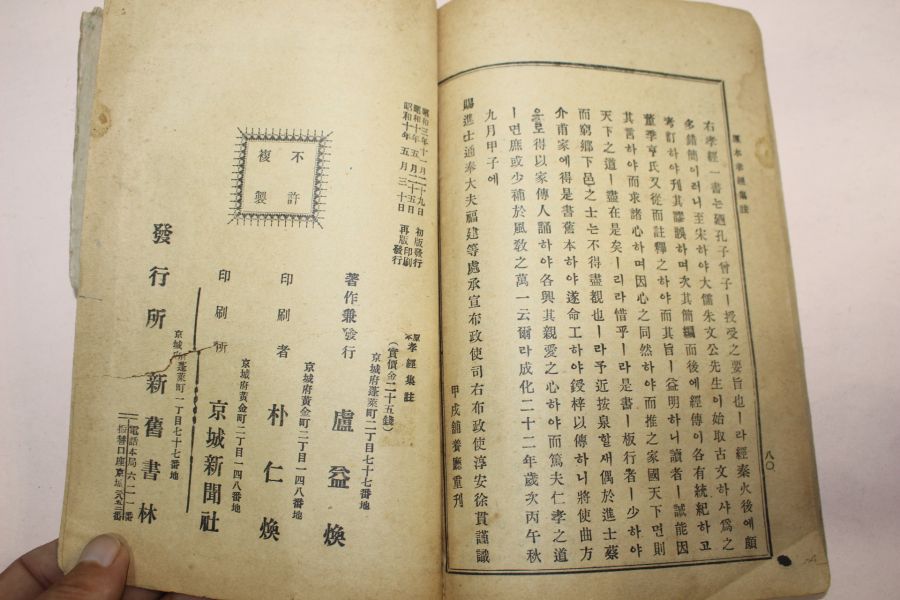 原本孝經集註
八〇
右孝經一書는廼孔子曾子ㅣ授受之要旨也ㅣ라經秦火後에頗
多錯簡이러니至宋하야大儒朱文公先生이始取古文하샤爲之
考訂하야刊其謬誤하며次其簡編而後에經傳이各有統紀하고
董季亨氏又從而註釋之하야而其旨ㅣ益明하니讀者ㅣ誠能因
其言하야而求諸心하며因心之同然하야而推之家國天下면則
天下之道ㅣ盡在是矣ㅣ리라惜乎ㅣ라是書ㅣ板行者ㅣ少하야
而窮鄉下邑之士는不得盡覩也ㅣ라予近按泉할새偶於進士蔡
介甫家에得是書舊本하야遂命工하야鋟梓以傳하니將使曲方
으로得以家傳人誦하야各興其親愛之心하야而篤夫仁孝之道
ㅣ면庶或少補於風敎之萬一云爾라成化二十二年歲次丙午秋
九月甲子에
賜進士通奉大夫福建等處承宣布政使司右布政使淳安徐貫謹識
甲戌 養廳重刊
昭和三年十一月二十九日 初版發行
昭和十年五月二十五日 再版印刷
昭和十年五月三十日 發行
不許
複製
原本孝經集註
(實價金二十五錢)
京城府蓬萊町二丁目七十七番地
著作兼發行 盧益煥
京城府黃金町二丁目一四八番地
印刷者 朴仁煥
京城府黃金町二丁目一四八番地
印刷所 京城新聞社
京城府蓬萊町二丁目七十七番地
發行所 新舊書林
電話本局六二一番
振替口座京城 番